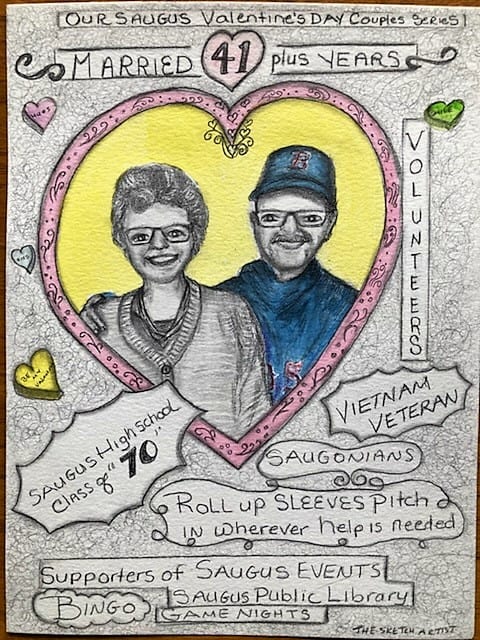 Our SAUGUS Valentine's DAY Couples Series!
MARRIED 41 plus YEARS
HUGS
BE MY
Valentine
VOLUNTEERS
VIETNAM
VETERAN
SAUGUS High school
Class of "70"
SAUGONIANS
ROLL up SLEEVES Pitch
IN wherever help is needed
Supporters of SAUGUS EVENTS
BINGO
SAUGUS Public Library
GAME NIGHTS
© THE SKETCH ARTIST